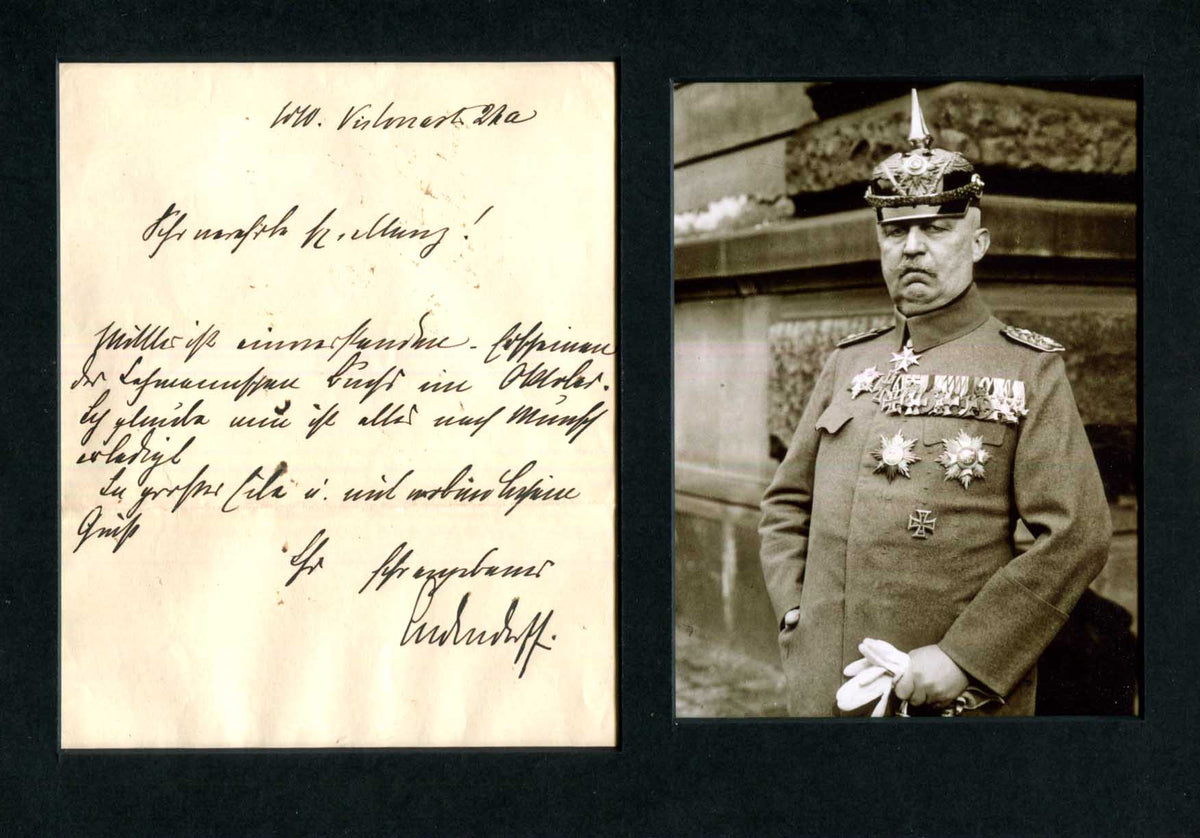 W10. Viktoriastr 24a
Sehr verehrter H.
Mittler ist einverstanden. Erscheinen
des Lehmannschen Buchs im Oktober.
Ich glaube nun ist alles nach Wunsch
erledigt
In großer Eile u. mit verbindlichem
Gruß
Ihr sehr ergebener
Ludendorff.